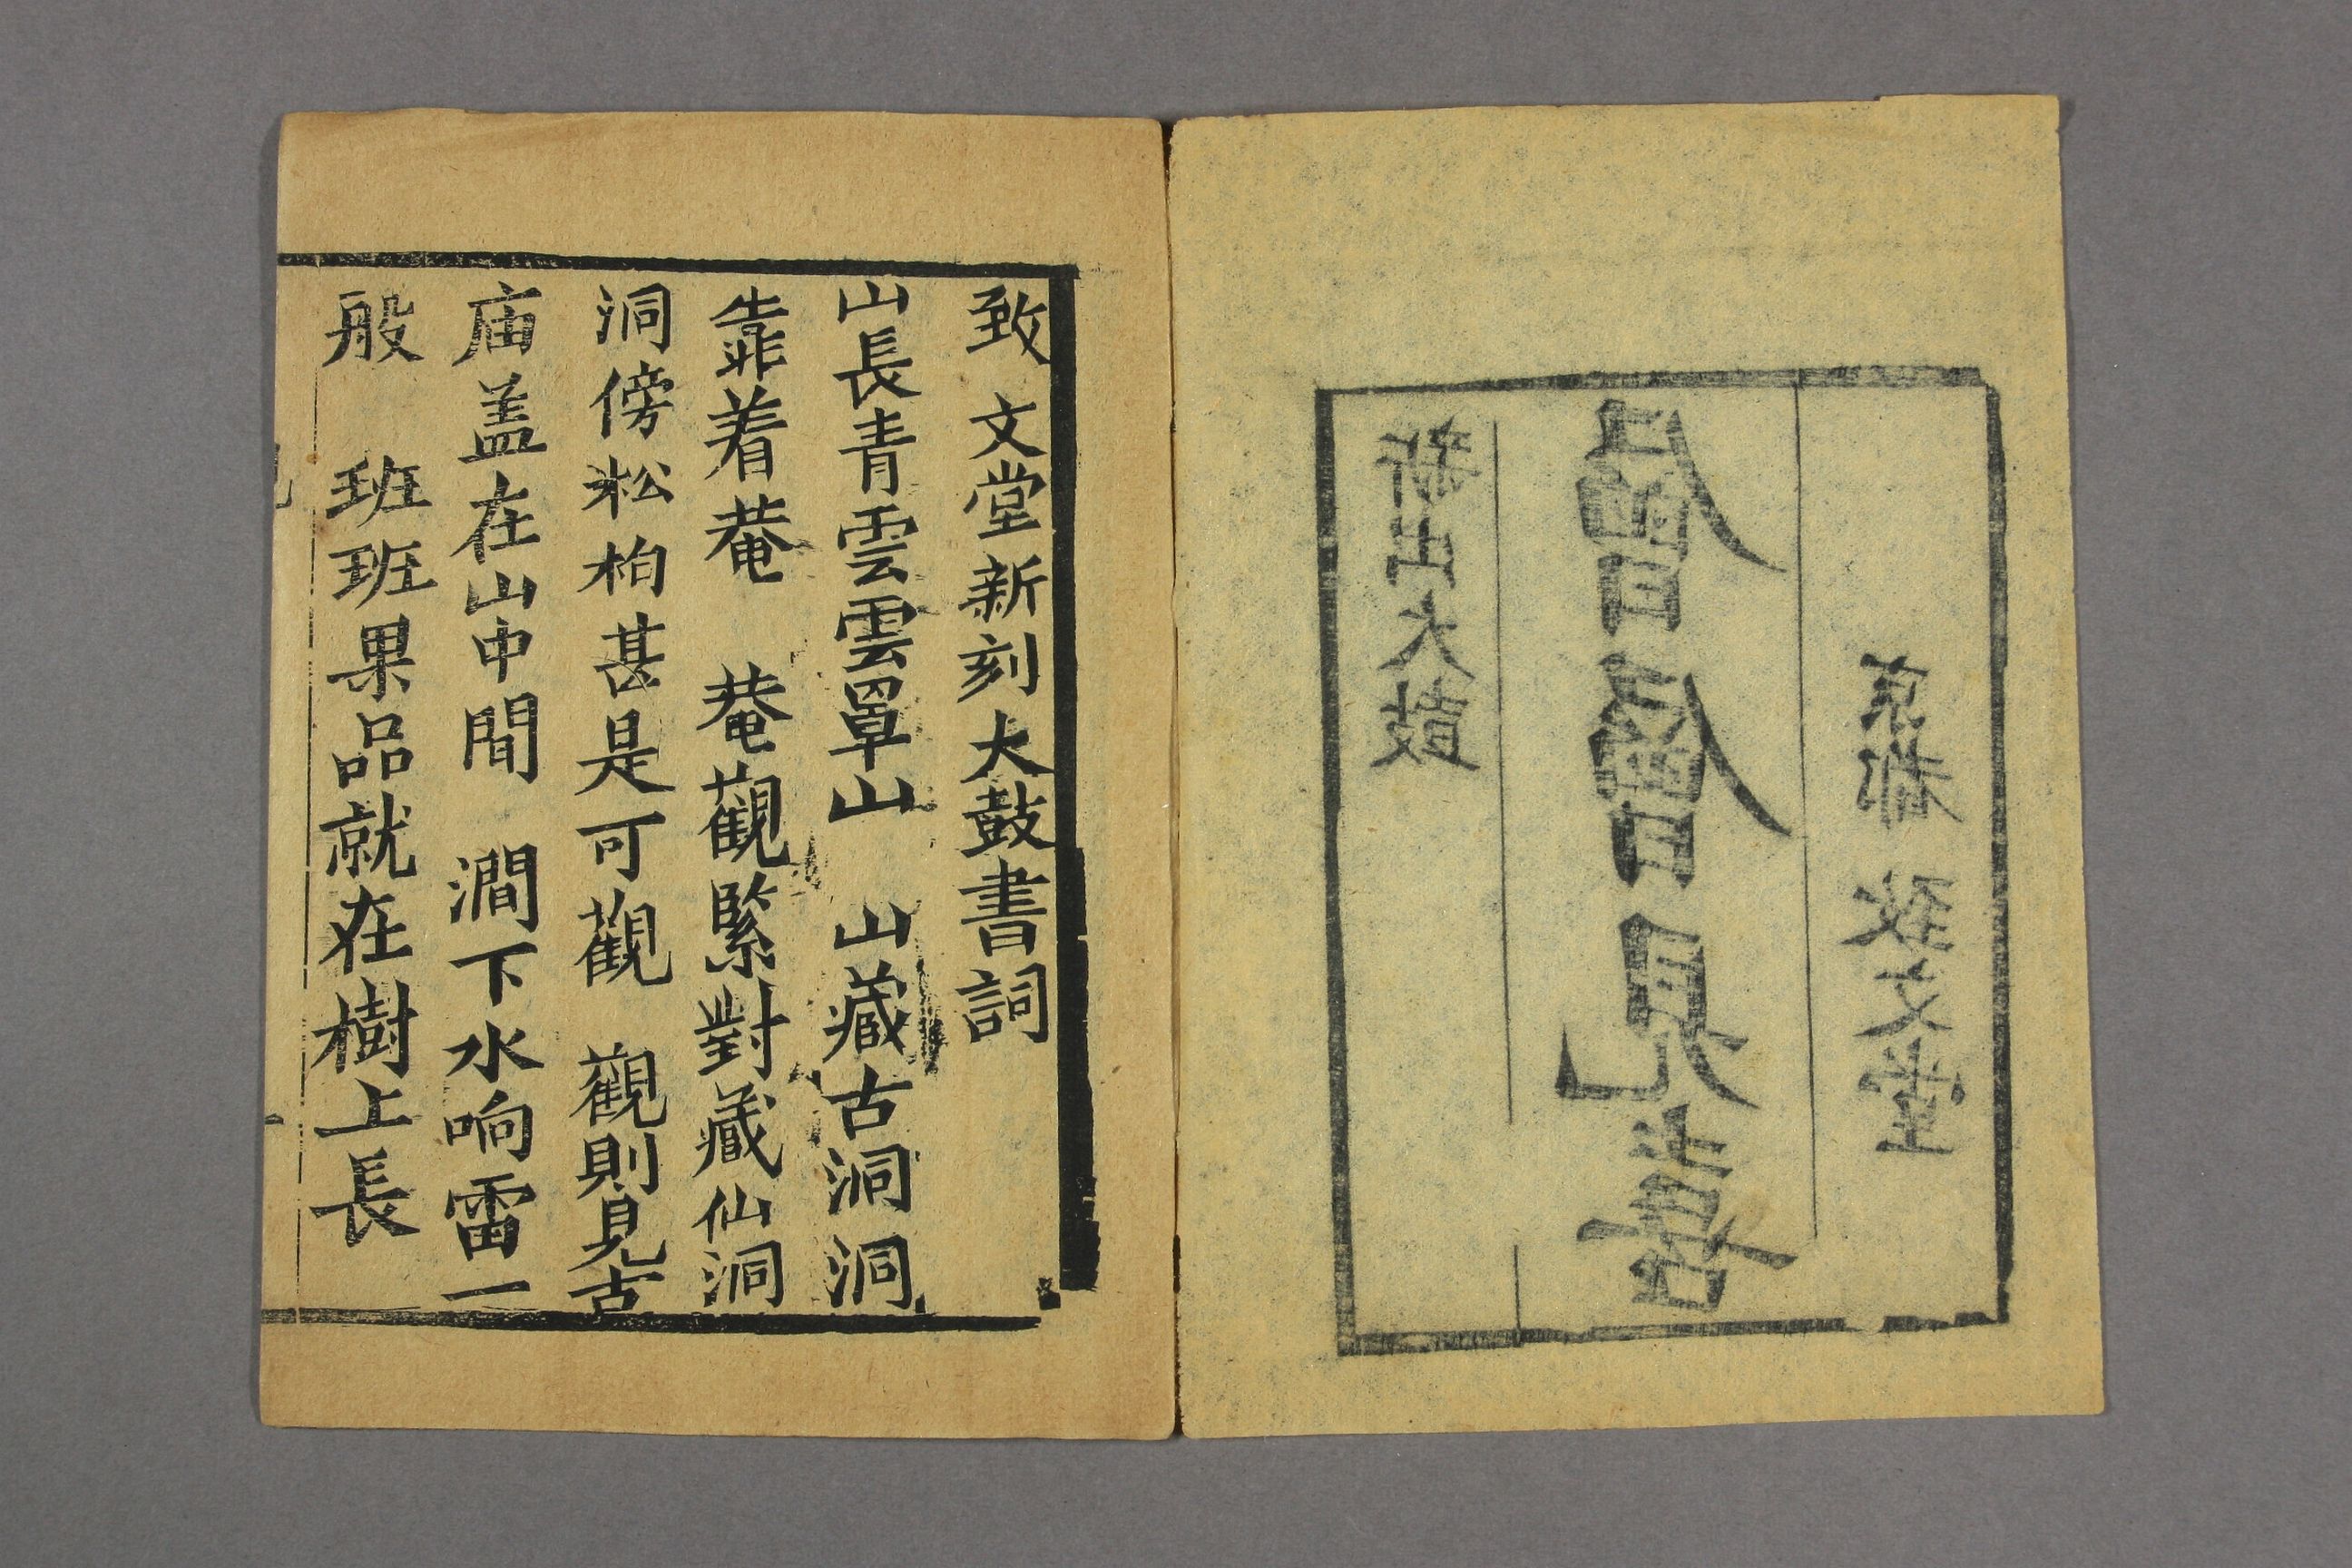 新出大鼓
層層見喜
京都 致文堂
致文堂新刻大鼓書詞
山長青雲雲罩山 山藏古洞洞
靠着菴 菴觀緊對藏仙洞
洞傍松柏甚是可觀 觀則見古
庙盖在山中間 澗下水响雷一
般 班班果品就在樹上長